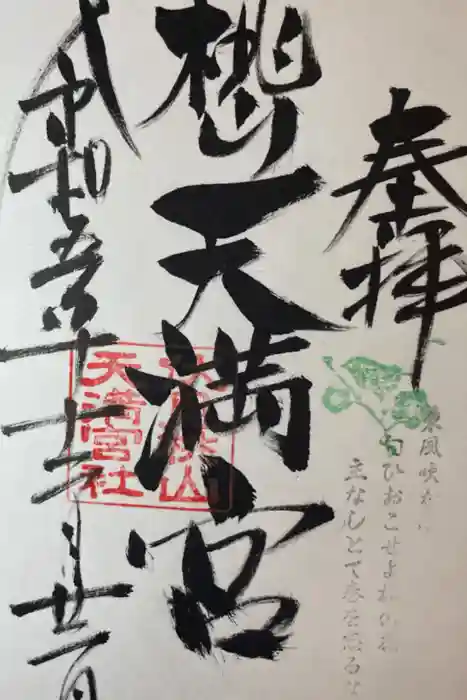 奉拝
桃山天満宮
令和五年十一月廿一日
東風吹かば
匂ひおこせよ梅の花
主なしとて春を忘るな
桃山
天満宮社